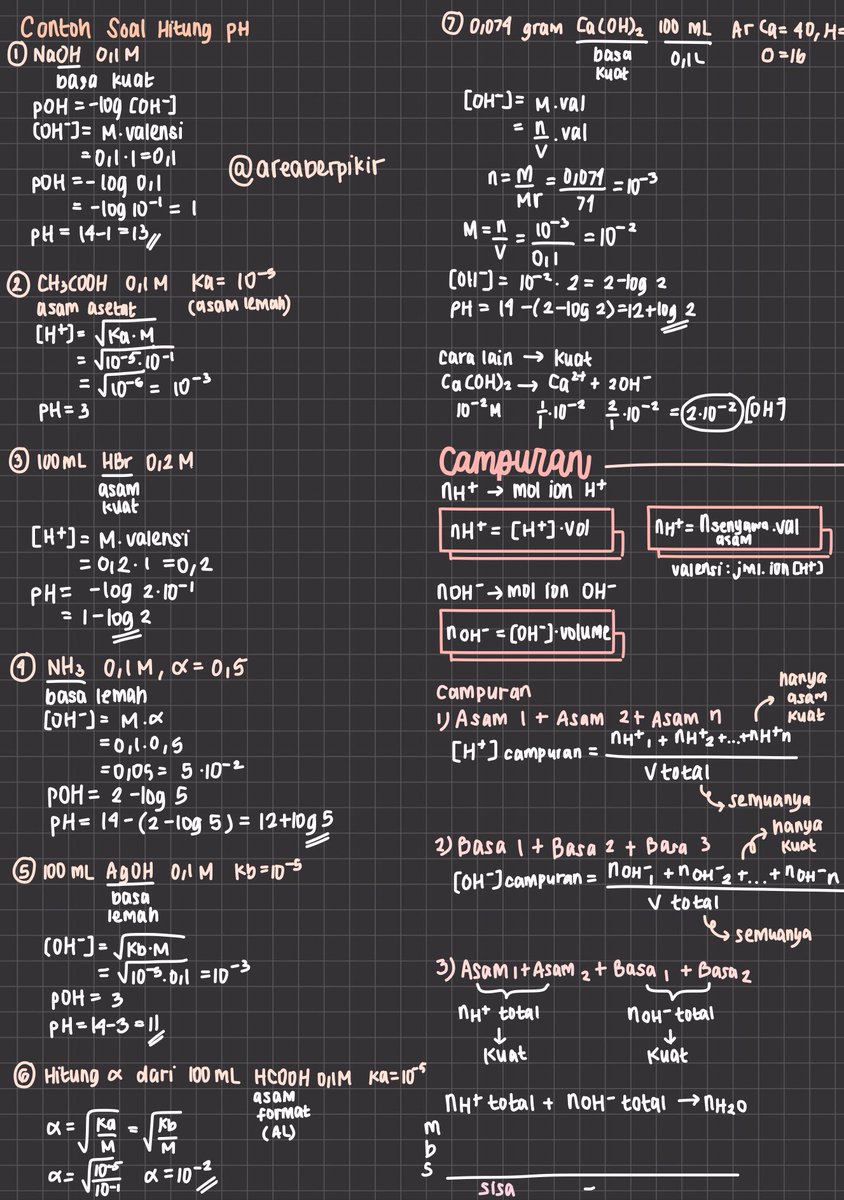 Contoh Soal Hitung pH
① NaOH 0,1 M
basa kuat
pOH = -log [OH⁻]
[OH⁻] = M. valensi
= 0,1 . 1 = 0,1
pOH = - log 0,1
= -log 10⁻¹ = 1
pH = 14-1 = 13
@areaberpikir
② CH₃COOH 0,1 M Ka = 10⁻⁵
asam asetat (asam lemah)
[H⁺] = √Ka . M
= √10⁻⁵.10⁻¹
= √10⁻⁶ = 10⁻³
pH = 3
③ 100 mL HBr 0,2 M
asam
kuat
[H⁺] = M. valensi
= 0,2 . 1 = 0,2
pH = -log 2.10⁻¹
= 1 - log 2
④ NH₃ 0,1 M, α = 0,5
basa lemah
[OH⁻] = M . α
= 0,1 . 0,5
= 0,05 = 5 . 10⁻²
pOH = 2 - log 5
pH = 14 - (2 - log 5) = 12 + log 5
⑤ 100 mL AgOH 0,1 M Kb = 10⁻⁵
basa
lemah
[OH⁻] = √Kb . M
= √10⁻⁵ . 0,1 = 10⁻³
pOH = 3
pH = 14 - 3 = 11
⑥ Hitung α dari 100 mL HCOOH 0,1M Ka = 10⁻⁵
asam
format
(AL)
α = √Ka/M = √Kb/M
α = √10⁻⁵/10⁻¹ α = 10⁻²
⑦ 0,074 gram Ca(OH)₂ 100 mL Ar Ca = 40, H =
basa kuat 0,1 L O = 16
[OH⁻] = M . val
= n/V . val
n = M/Mr = 0,074/74 = 10⁻³
M = n/V = 10⁻³/0,1 = 10⁻²
[OH⁻] = 10⁻² . 2 = 2 - log 2
PH = 14 - (2 - log 2) = 12 + log 2
cara lain → kuat
Ca(OH)₂ → Ca²⁺ + 2OH⁻
10⁻² M 1/1 . 10⁻² 2/1 . 10⁻² = 2 . 10⁻² [OH⁻]
Campuran
nH⁺ → mol ion H⁺
nH⁺ = [H⁺] . vol
nH⁺ = n senyawa asam . val
valensi : jml. ion [H⁺]
nOH⁻ → mol ion OH⁻
nOH⁻ = [OH⁻] . volume
campuran
1) Asam 1 + Asam 2 + Asam n
hanya asam kuat
[H⁺] campuran = nH⁺₁ + nH⁺₂ + ... + nH⁺n / V total
semuanya
2) Basa 1 + Basa 2 + Basa 3
hanya kuat
[OH⁻] campuran = nOH⁻₁ + nOH⁻₂ + ... + nOH⁻n / V total
semuanya
3) Asam₁ + Asam₂ + Basa₁ + Basa₂
nH⁺ total nOH⁻ total
↓ ↓
kuat kuat
nH⁺ total + nOH⁻ total → nH₂O
m
b
s
sisa –